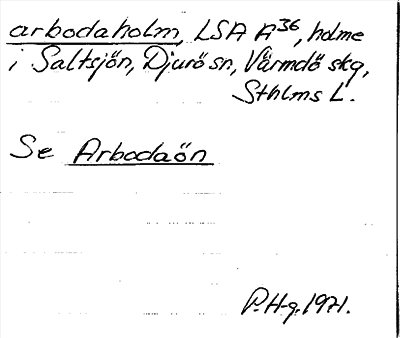 arbodaholm, LSA A36, holme
i Saltsjön, Djurö sn, Värmdö skg,
Sthlms L.
Se Arbodaön
P. H-g. 1971.